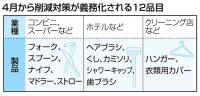 4月から削減対策が義務化される12品目
業種
コンビニ、
スーパーなど
ホテルなど
クリーニング店
など
製品
フォーク、
スプーン、
ナイフ、
マドラー、ストロー
ヘアブラシ、
くし、カミソリ、
シャワーキャップ、
歯ブラシ
ハンガー、
衣類用カバー